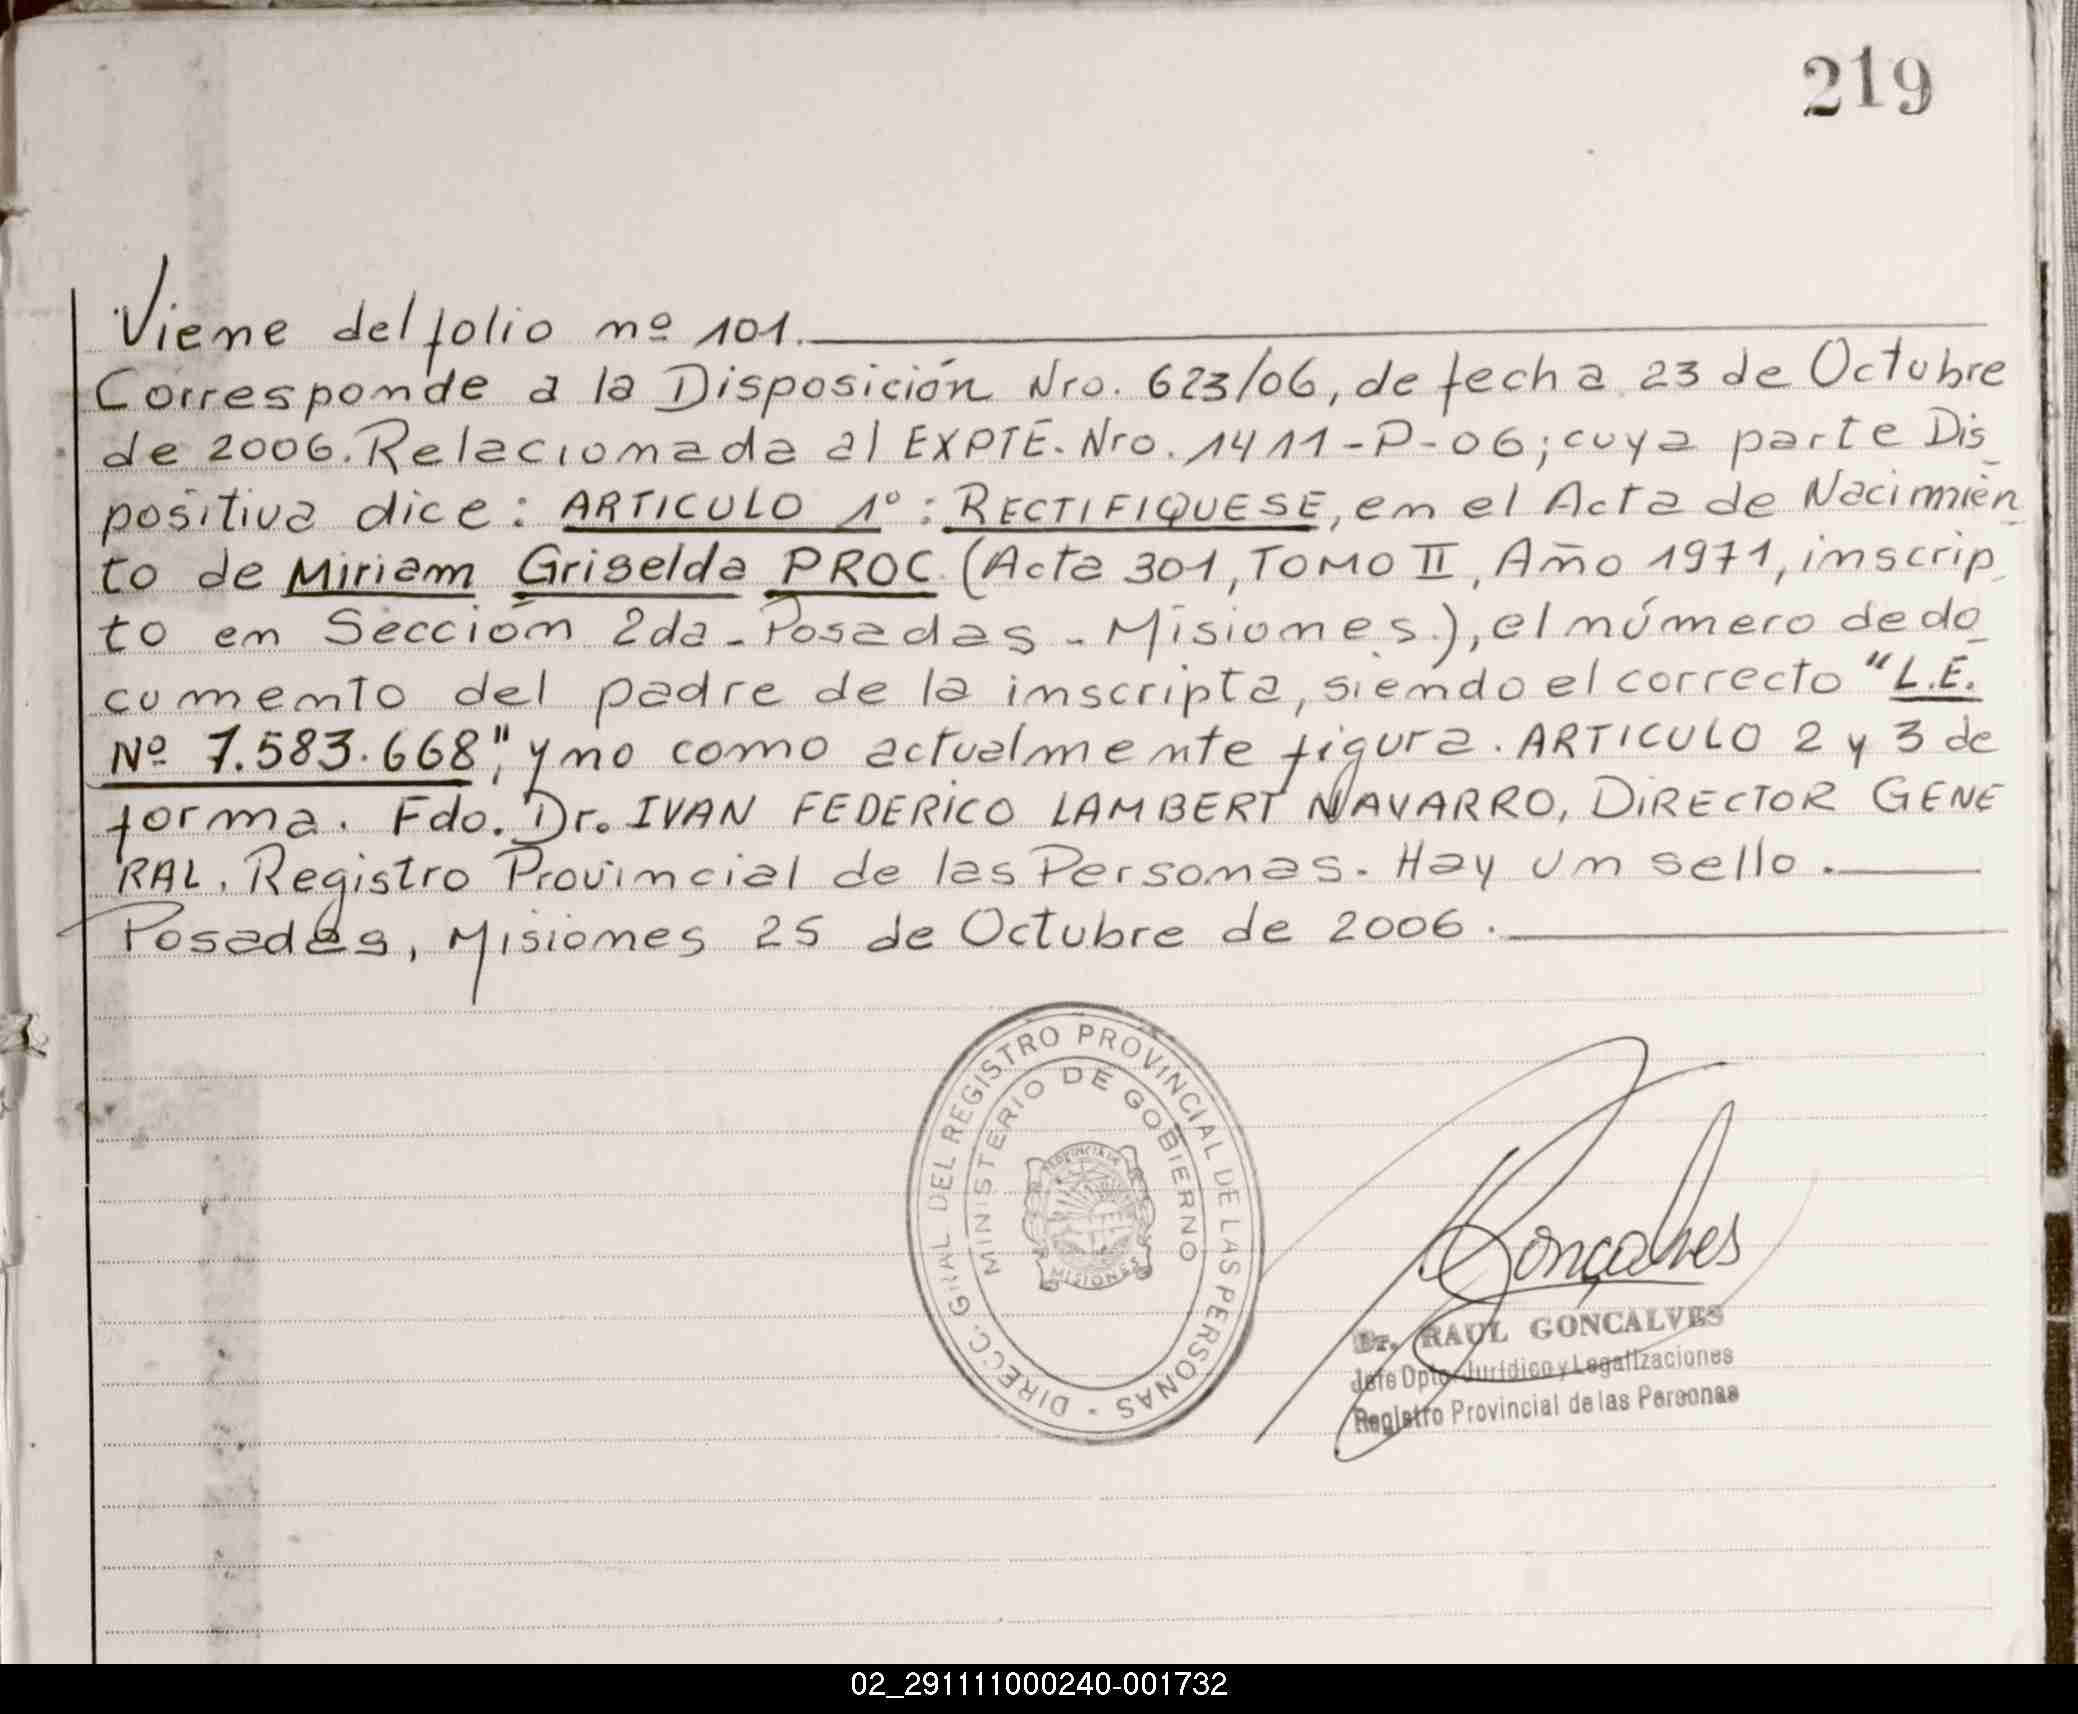 219
Viene del folio nº 101.
Corresponde a la Disposición Nro. 623/06, de fecha 23 de Octubre
de 2006. Relacionada al EXPTE. Nro. 1411-P-06; cuya parte Dis_
positiva dice: ARTICULO 1º: RECTIFIQUESE, en el Acta de Nacimien_
to de Miriam Griselda PROC (Acta 301, TOMO II, Año 1971, inscrip_
to en Sección 2da - Posadas - Misiones.), el número de do_
cumento del padre de la inscripta, siendo el correcto "L.E.
Nº 7.583.668", y no como actualmente figura. ARTICULO 2 y 3 de
forma. Fdo. Dr. IVAN FEDERICO LAMBERT NAVARRO, DIRECTOR GENE
RAL. Registro Provincial de las Personas. Hay un sello.
Posadas, Misiones 25 de Octubre de 2006.
DIRECC. GRAL DEL REGISTRO PROVINCIAL DE LAS PERSONAS -
MINISTERIO DE GOBIERNO
PROVINCIA DE
MISIONES
Gonçalves
Dr. RAUL GONCALVES
Jefe Dpto. Jurídico y Legalizaciones
Registro Provincial de las Personas
02_291111000240-001732